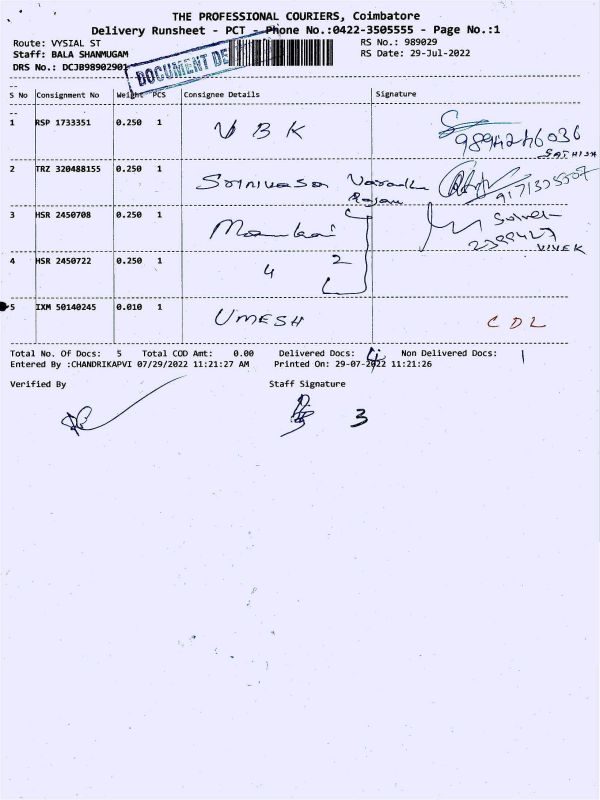 THE PROFESSIONAL COURIERS, Coimbatore
Delivery Runsheet - PCT - Phone No.:0422-3505555 - Page No.:1
Route: VYSIAL ST RS No.: 989029
Staff: BALA SHANMUGAM RS Date: 29-Jul-2022
DRS No.: DCJB98902901
DOCUMENT DE
S No Consignment No Weight PCS Consignee Details Signature
1 RSP 1733351 0.250 1 V B K
SATHISH
2 TRZ 320488155 0.250 1 Srinivasa Varadha
Rajan
3 HSR 2450708 0.250 1
VIVEK
4 HSR 2450722 0.250 1 4 2
5 IXM 50140245 0.010 1 UMESH CDL
Total No. Of Docs: 5 Total COD Amt: 0.00 Delivered Docs: 4 Non Delivered Docs: 1
Entered By :CHANDRIKAPVI 07/29/2022 11:21:27 AM Printed On: 29-07-2022 11:21:26
Verified By Staff Signature
3